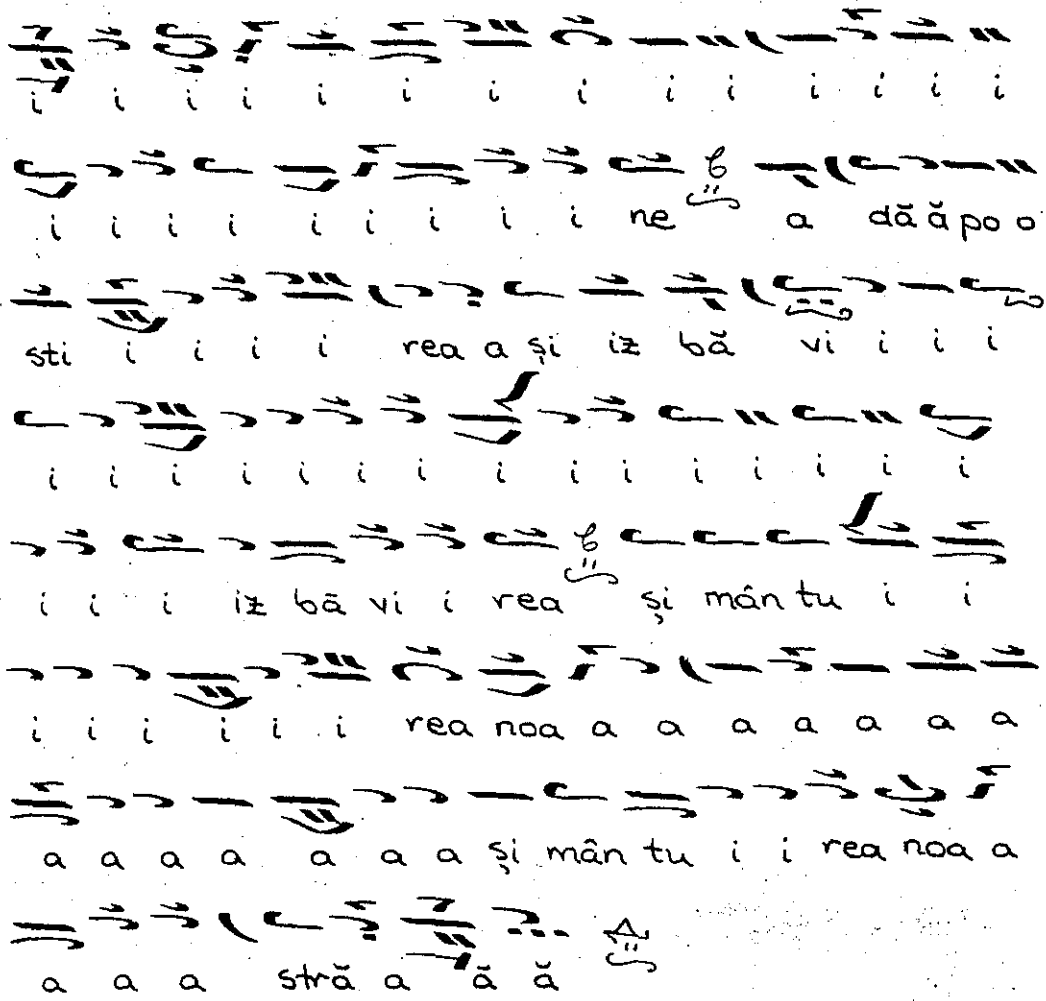 i i i i i i i i i i i i i i
i i i i i i i i i ne a dă ă po o
sti i i i i rea a și iz bă vi i i i
i i i i i i i i i i i i i i i
i i i iz bă vi i rea și mân tu i i
i i i i i i rea noa a a a a a a a
a a a a a a a și mân tu i i rea noa a
a a a stră a ă ă